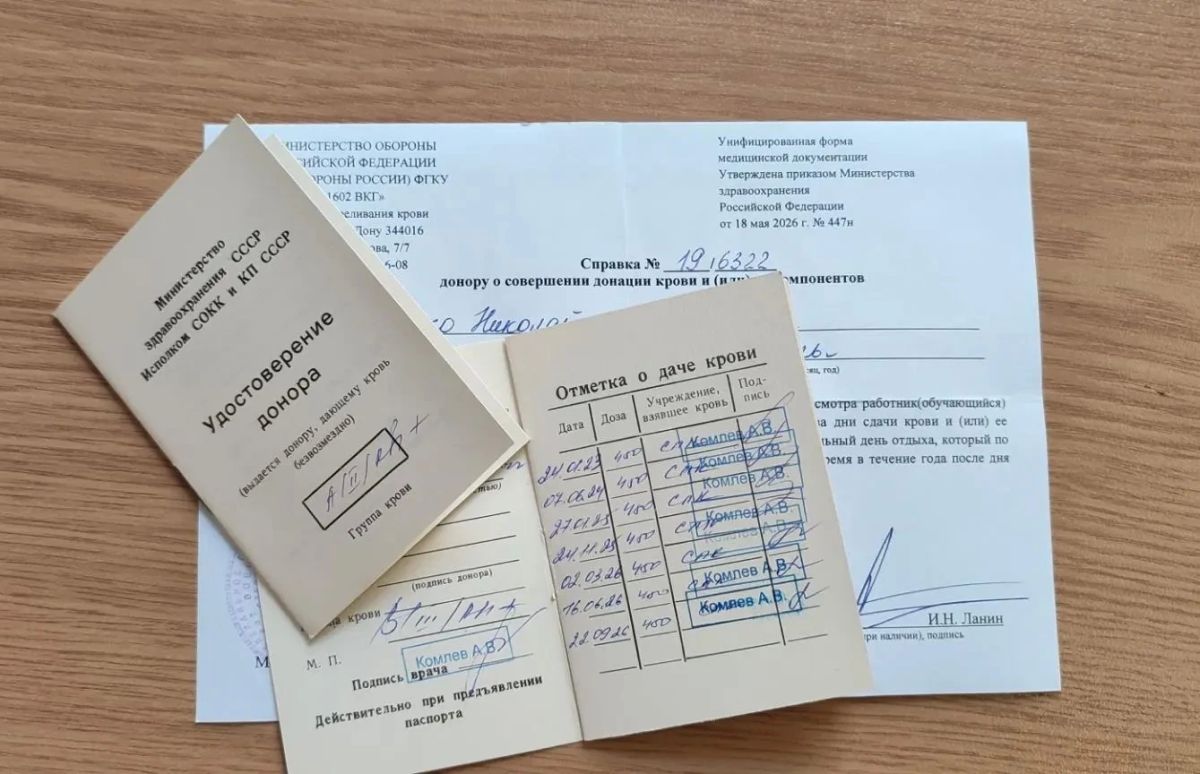 Министерство
здравоохранения СССР
Исполком СОКК и КП СССР
Удостоверение
донора
(выдается донору, дающему кровь
безвозмездно)
A(II)Rh+
Группа крови
НИСТЕРСТВО ОБОРОНЫ
ИЙСКОЙ ФЕДЕРАЦИИ
ОРОНЫ РОССИИ) ФГКУ
1602 ВКГ»
еливания крови
Дону 344016
ова, 7/7
6-08
Унифицированная форма
медицинской документации
Утверждена приказом Министерства
здравоохранения
Российской Федерации
от 18 мая 2026 г. № 447н
Справка № 19/6322
донору о совершении донации крови и (или) компонентов
ко Николай
сяц, год)
смотра работник(обучающийся)
а дни сдачи крови и (или) ее
льный день отдыха, который по
ремя в течение года после дня
И.Н. Ланин
при наличии), подпись
(подпись донора)
па крови B(III)Rh+
М. П.
Комлев А.В.
Подпись врача
Действительно при предъявлении
паспорта
Отметка о даче крови
Дата Доза Учреждение, взявшее кровь Подпись
24.01.23 450 СПК Комлев А.В.
07.06.24 450 СПК Комлев А.В.
27.01.25 450 СПК Комлев А.В.
24.11.25 450 СПК Комлев А.В.
02.03.26 450 СПК Комлев А.В.
16.06.26 450 Комлев А.В.
22.09.26 450 Комлев А.В.